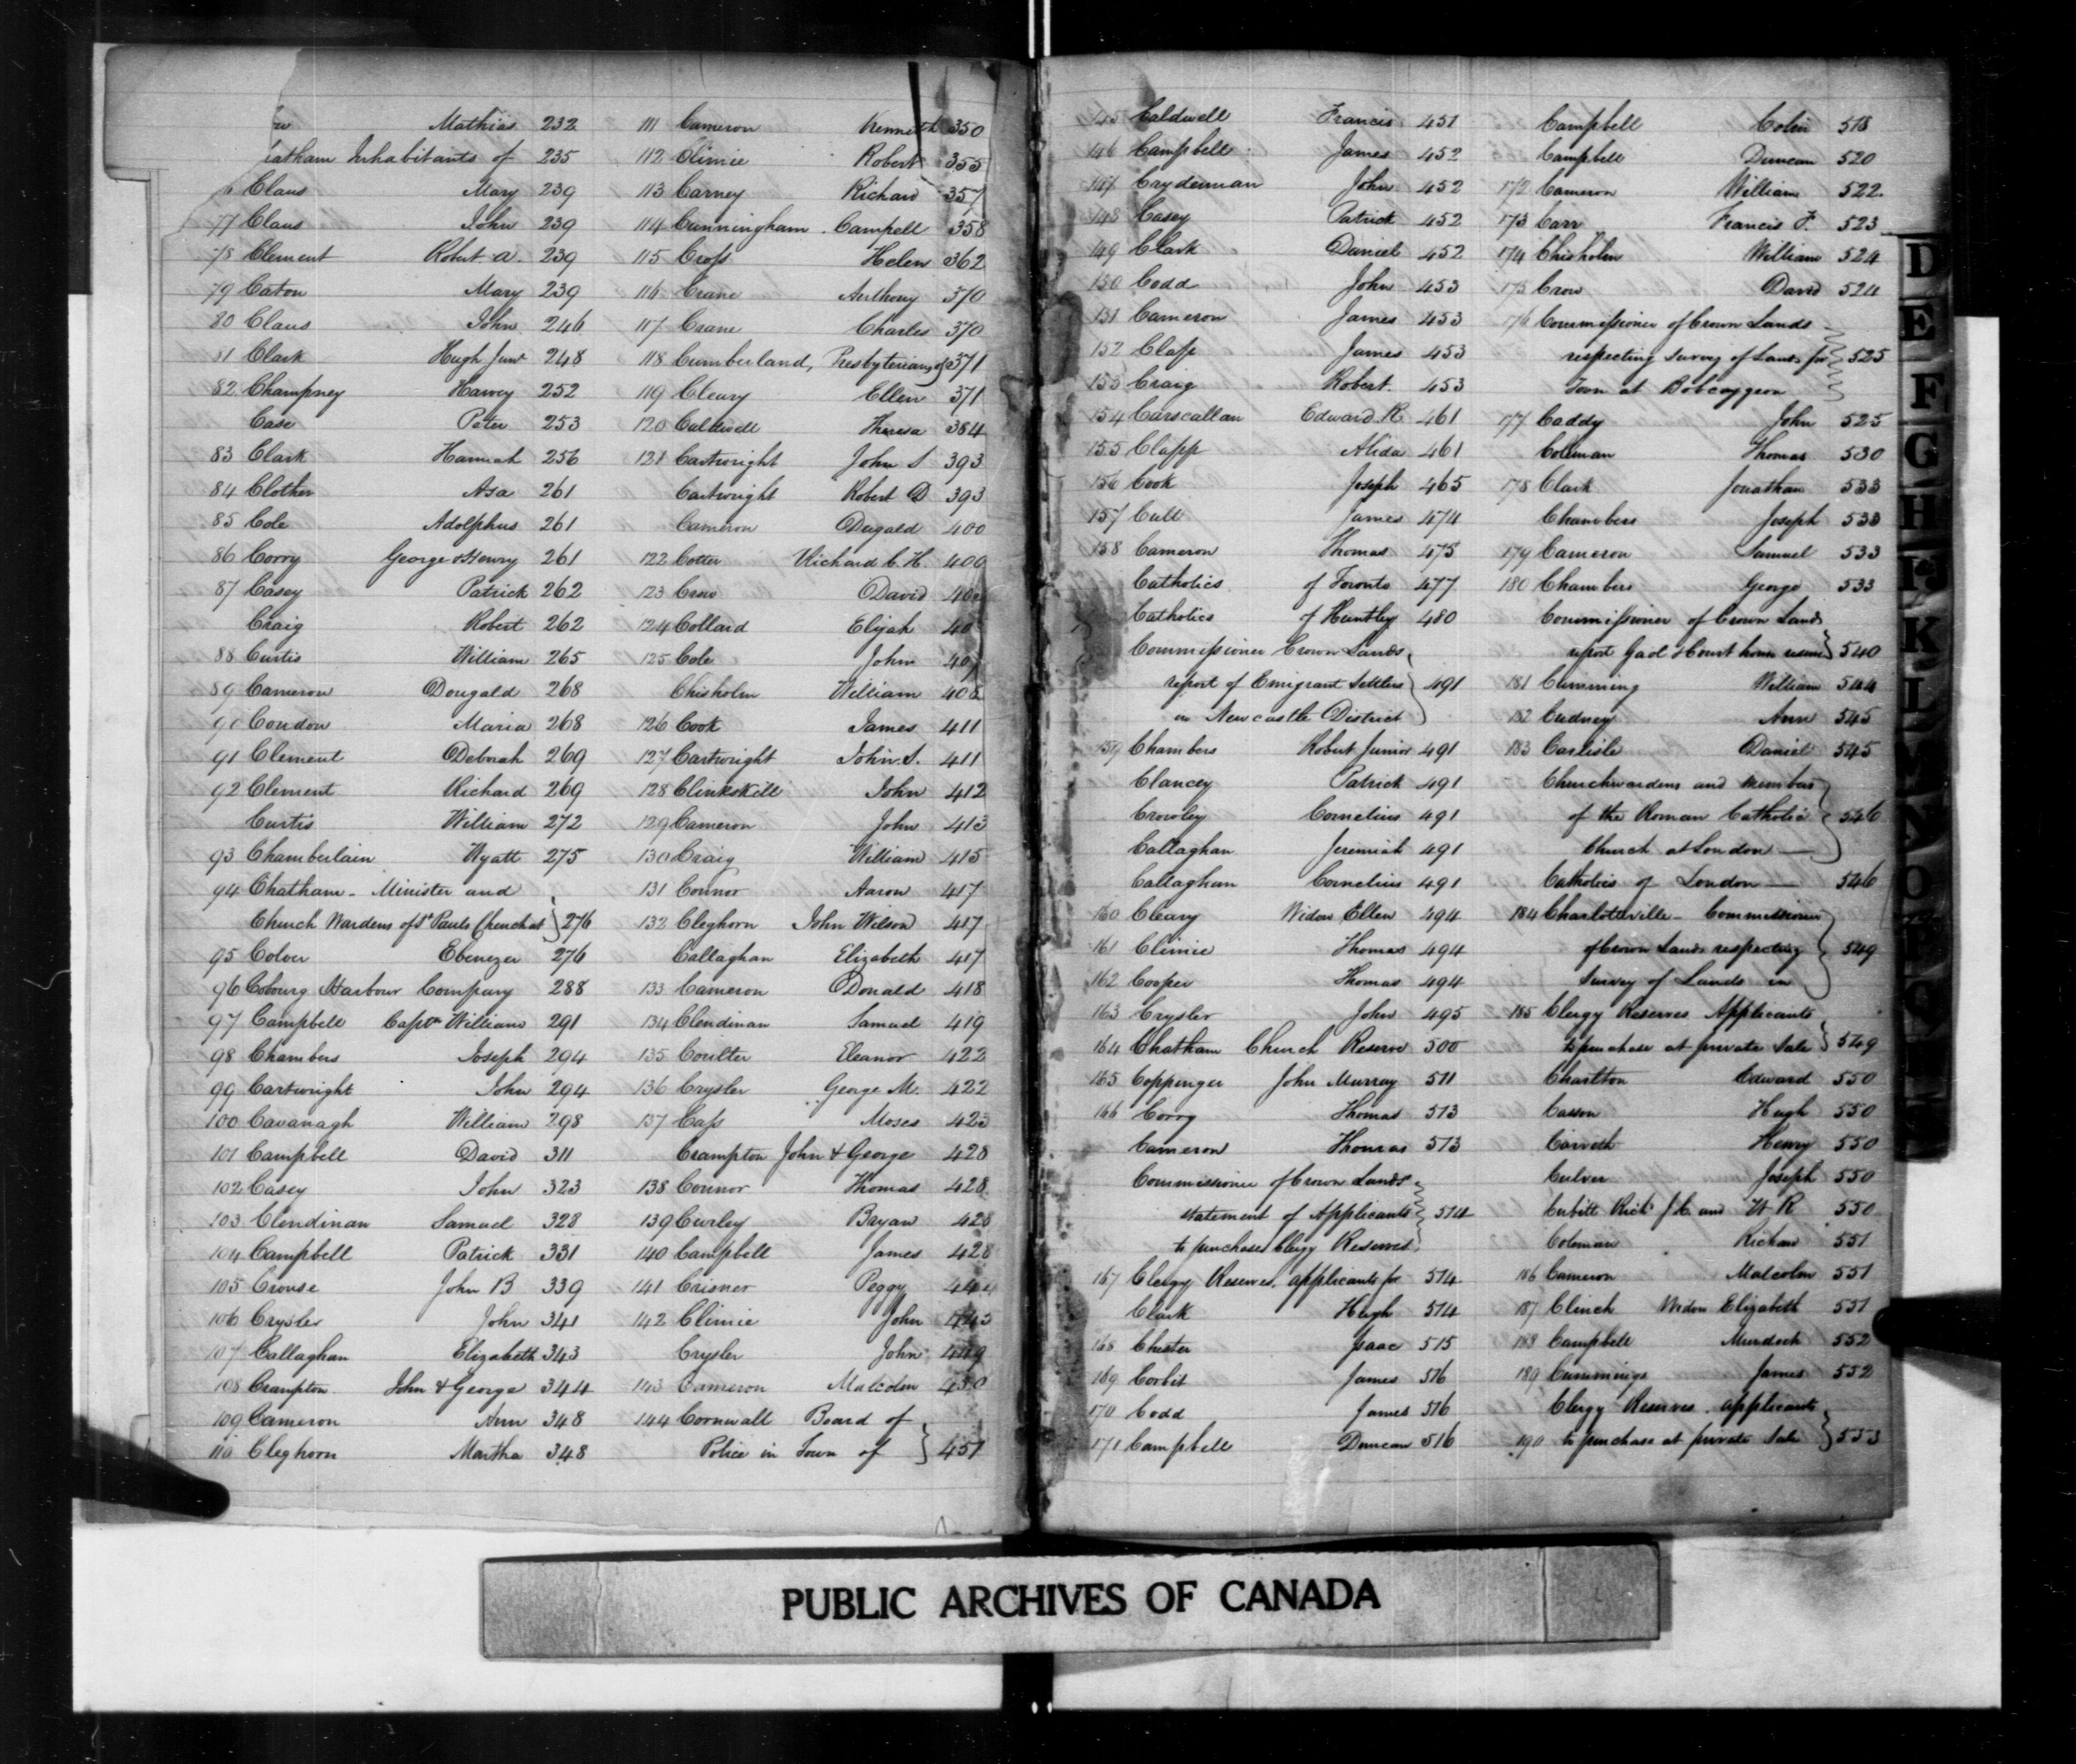 Mathias 232
Inhabitants of 235
Claus Mary 239
77 Claus John 239
78 Clement Robert A. 239
79 Caton Mary 239
80 Claus John 246
81 Clark Hugh Junr 248
82 Champney Harvey 252
Case Peter 253
83 Clark Hannah 256
84 Clother Asa 261
85 Cole Adolphus 261
86 Corry George & Henry 261
87 Casey Patrick 262
Craig Robert 262
88 Curtis William 265
89 Cameron Dougald 268
90 Condon Maria 268
91 Clement Deborah 269
92 Clement Richard 269
Curtis William 272
93 Chamberlain Wyatt 275
94 Chatham - Minister and
Church Wardens of St Pauls Church at 276
95 Colver Ebenezer 276
96 Cobourg Harbour Company 288
97 Campbell Captn William 291
98 Chambers Joseph 294
99 Cartwright John 294
100 Cavanagh William 298
101 Campbell David 311
102 Casey John 323
103 Clendinan Samuel 328
104 Campbell Patrick 331
105 Crouse John B 339
106 Crysler John 341
107 Callaghan Elizabeth 343
108 Crampton John & George 344
109 Cameron Ann 348
110 Cleghorn Martha 348
111 Cameron Kenneth 350
112 Climie Robert 355
113 Carney Richard 357
114 Cunningham Campell 358
115 Cross Helen 362
116 Crane Anthony 370
117 Crane Charles 370
118 Cumberland, Presbyterians of 371
119 Cleary Ellen 371
120 Caldwell Theresa 384
121 Cartwright John S 393
Cartwright Robert D 393
Cameron Dugald 400
122 Cotter Richard C. H. 400
123 Crow David
124 Collard Elijah
125 Cole John
Chisholm William 408
126 Cook James 411
127 Cartwright John. S. 411
128 Clinkskill John 412
129 Cameron John 413
130 Craig William 415
131 Connor Aaron 417
132 Cleghorn John Wilson 417
Callaghan Elizabeth 417
133 Cameron Donald 418
134 Clendinan Samuel 419
135 Coulter Eleanor 422
136 Crysler George M. 422
137 Cass Moses 423
Crampton John & George 428
138 Connor Thomas 428
139 Curley Bryan 428
140 Campbell James 428
141 Crisner Peggy 444
142 Climie John 445
Crysler John 449
143 Cameron Malcolm 450
144 Cornwall Board of
Police in Town of 451
145 Caldwell Francis 451
146 Campbell James 452
147 Cayderman John 452
148 Casey Patrick 452
149 Clark Daniel 452
150 Codd John 453
151 Cameron James 453
152 Class James 453
153 Craig Robert 453
154 Carscallan Edward. R 461
155 Clapp Alida 461
156 Cook Joseph 465
157 Cull James 474
158 Cameron Thomas 475
Catholics of Toronto 477
Catholics of Huntley 480
Commissioner Crown Lands,
report of Emigrant Settlers 491
in Newcastle District
159 Chambers Robert Junior 491
Clancey Patrick 491
Crowley Cornelius 491
Callaghan Jeremiah 491
Callaghan Cornelius 491
160 Cleary Widow Ellen 494
161 Climie Thomas 494
162 Cooper Thomas 494
163 Crysler John 495
164 Chatham Church Reserve 500
165 Coppinger John Murray 511
166 Corry Thomas 513
Cameron Thomas 513
Commissioner of Crown Lands
statement of Applicants 514
to purchase Clergy Reserves
167 Clergy Reserves, applicants for 514
Clark Hugh 514
168 Chester Isaac 515
169 Corbit James 516
170 Codd James 516
171 Campbell Duncan 516
Campbell Colin 518
Campbell Duncan 520
172 Cameron William 522
173 Carr Francis F. 523
174 Chisholm William 524
175 Crow David 524
176 Commissioner of Crown Lands
respecting Survey of Lands for 525
Town at Bobcaygeon
177 Caddy John 525
Coleman Thomas 530
178 Clark Jonathan 533
Chambers Joseph 533
179 Cameron Samuel 533
180 Chambers George 533
Commissioner of Crown Lands
report Gaol & Court house reserve 540
181 Cumming William 544
182 Cudney Ann 545
183 Carlisle Daniel 545
Churchwardens and members
of the Roman Catholic 546
Church at London
Catholics of London 546
184 Charlotteville - Commissioner
of Crown Lands respecting 549
Survey of Lands in
185 Clergy Reserves Applicants
to purchase at private Sale 549
Charlton Edward 550
Casson Hugh 550
Carveth Henry 550
Culver Joseph 550
Corbitt Richd J C and W R 550
Coleman Richard 551
186 Cameron Malcolm 551
187 Clinch Widow Elizabeth 551
188 Campbell Murdoch 552
189 Cummings James 552
Clergy Reserves, applicants
190 to purchase at private Sale 553
D
E
F
G
H
K
L
M
N
O
Q
PUBLIC ARCHIVES OF CANADA